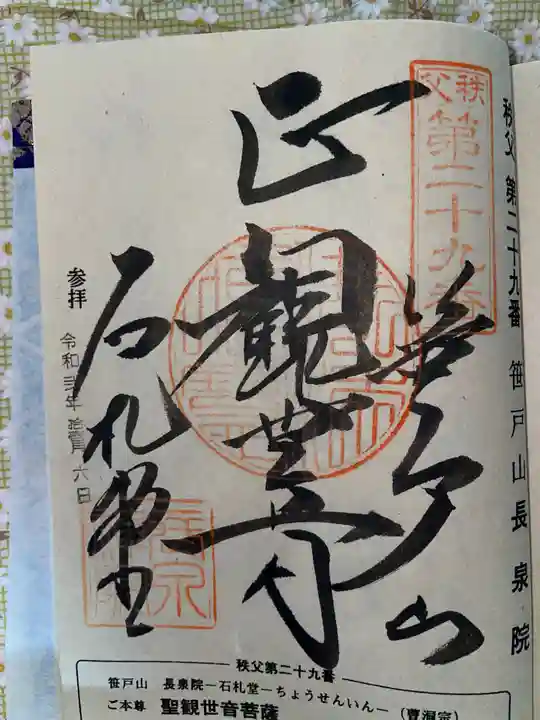 秩父
第二十九番
秩父 第二十九番 笹戸山長泉院
笹戸山
正観世音
石札堂
参拝
令和弐年拾月六日
秩父第二十九番
笹戸山 長泉院―石札堂―ちょうせんいん―(曹洞宗)
ご本尊 聖観世音菩薩